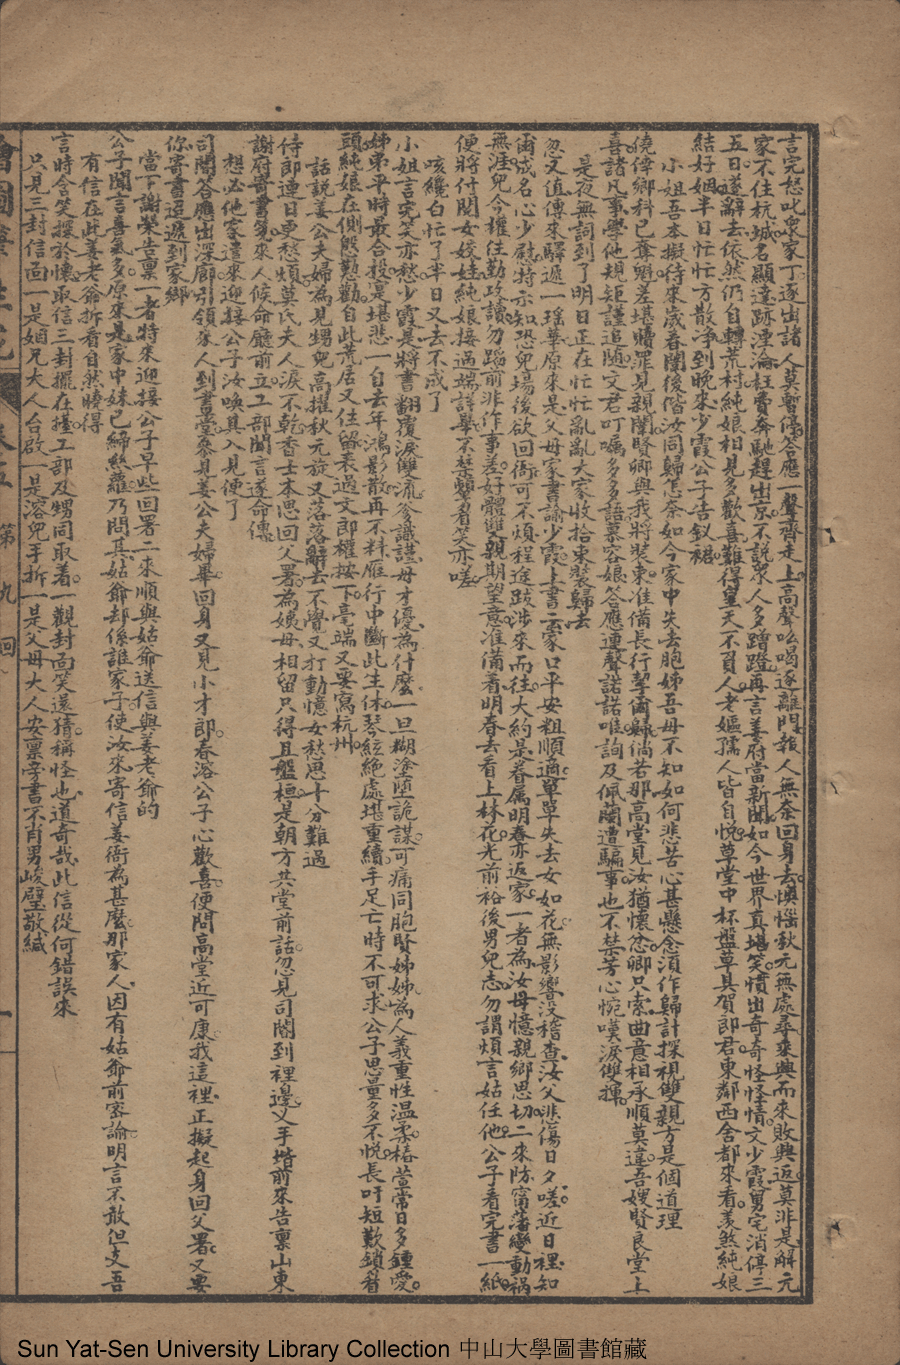 言完怒叱衆家丁逐出諸人莫暫停答應一聲齊走上高聲吆喝逐離門報人無奈回身去懊惱秋元無處尋乘興而來敗興返莫非是解元
家不住杭城名顯達跡湮淪枉費奔馳趕出京不說衆人多蹭蹬再言姜府當新聞如今世界真堪笑慣出奇奇怪怪情文少霞舅宅消停三
五日遂辭去依然仍自轉荒村純娘相見多歡喜難得皇天不負人老嫗孺人皆自悅草堂中杯盤草具賀郎君東鄰西舍都來看羨煞純娘
結好姻半日忙忙方散净到晚來少霞公子告釵裙
小姐吾本擬待來歲春闈後偕汝同歸怎奈如今家中失去胞姊吾母不知如何悲苦心甚懸念須作歸計探視雙親方是個道理
僥倖鄉科已奪魁差堪贖罪見親闈賢卿與我將裝束准備長行挈爾歸倘若那高堂見汝猶懷忿卿只索曲意相承順莫違吾嫂賢良堂上
喜諸凡事學他規矩謹追隨文君叮囑多多語慕容娘答應連聲諾諾唯詢及佩蘭遭騙事也不禁芳心惋嘆淚雙揮
是夜無詞到了明日正在忙忙亂亂大家收拾束裝歸去
忽文值傳來驛遞一瑤華原來是父母家書諭少霞上書云家口平安粗順適單單失去女如花無影響没稽查汝父悲傷日夕嗟近日裡知
爾成名心少慰特示知恐兒場後欲回衙可不煩程途跋涉來而往大約是眷属明春亦返家一者為汝母憶親鄉思切二來防甯藩變動禍
無涯兒今權住勤攻讀勿蹈前非作事差好體雙親期望意准備着明春去看上林花光前裕後男兒志勿謂煩言姑任他公子看完書一紙
便將付閱女姣娃純娘接過端詳畢不禁顰眉笑亦嗟
咳纔白忙了半日又去不成了
小姐言完笑亦愁少霞是將書翻覆淚雙流爹識諶母才優為什麼一旦糊塗墮詭謀可痛同胞賢姊姊為人義重性温柔椿萱常日多鍾愛
姊弟平時最合投是堪悲一自去年鴻影散再不料雁行中斷此生休琴絃絶處堪重續手足亡時不可求公子思量多不悅長吁短歎鎖眉
頭純娘在側慇懃勸自此荒居又住留表過文郎權按下毫端又要寫杭州
話說姜公夫婦為見甥兒高擢秋元旋又落落辭去不覺又打動憶女愁思十分難過
侍郎連日更愁煩莫氏夫人淚不乾香士本思回父署為姨母相留只得且盤桓是朝方共堂前話忽見司閽到裡邊乂手堦前來告稟山東
謝府寄書箋來人候命廳前立工部聞言遂命傳
想必他家遣來迎接公子汝喚其入見便了
司閽答應出深廊引領來人到畫臺叅見姜公夫婦畢回身又見小才郎春溶公子心歡喜便問高堂近可康我這裡正擬起身回父署又要
你寄書迢遞到家鄉
當下謝榮告稟一者特來迎接公子早些回署二來順與姑爺送信與姜老爺的
公子聞言喜氣多原來是家中妹已締絲蘿乃問其姑爺却係誰家子使汝來寄信姜衙為甚麽那家人因有姑爺前密諭明言不敢但支吾
有信在此姜老爺拆看自然曉得
言時含笑探於懷取信三封擺在擡工部及甥同取着一觀封面笑還猜稱怪也道奇哉此信從何錯誤來
只見三封信面一是姻兄大人台啟一是溶兒手拆一是父母大人安稟旁書不肖男峻璧敬緘
第九回
Sun Yat-Sen University Library Collection 中山大學圖書館藏